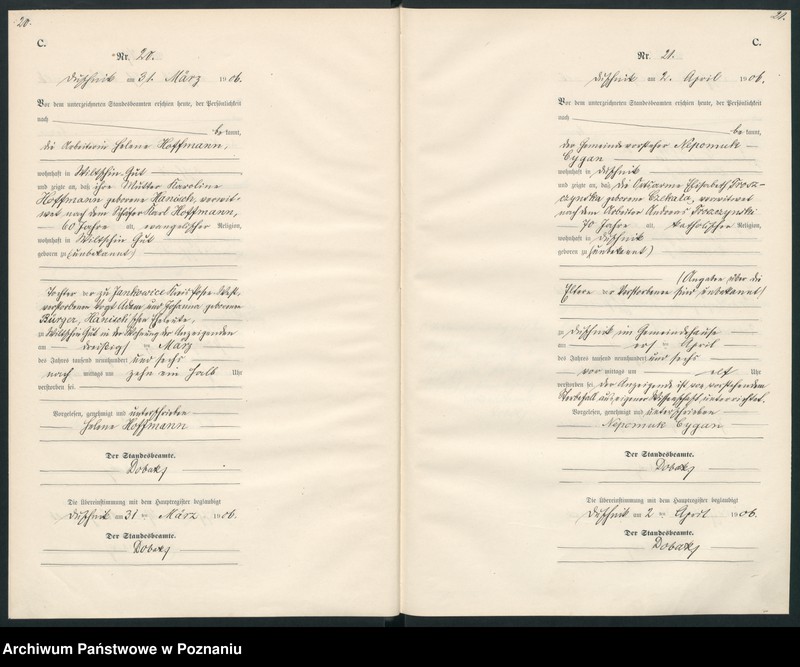 20.
C.
Nr. 20.
Duschnik am 31. März 1906.
Vor dem unterzeichneten Standesbeamten erschien heute, der Persönlichkeit
nach
bekannt,
die Arbeiterin Helene Hoffmann,
wohnhaft in Wiltschin Gut
und zeigte an, daß ihre Mutter Karoline
Hoffmann geborene Hänisch, verwit-
wet nach dem Schäfer Karl Hoffmann,
60 Jahre alt, evangelischer Religion,
wohnhaft in Wiltschin Gut
geboren zu (unbekannt)
Tochter der zu Jankowice Kreis Posen-West
verstorbenen Vogt und Johanna geborenen
Bürger, Hänisch'schen Eheleute,
zu Wiltschin Gut in der Wohnung der Anzeigenden
am dreißigsten März
des Jahres tausend neunhundert und sechs
nachmittags um zehn ein halb Uhr
verstorben sei.
Vorgelesen, genehmigt und unterschrieben
Helene Hoffmann
Der Standesbeamte.
Dobak
Die Übereinstimmung mit dem Hauptregister beglaubigt
Duschnik am 31 ten März 1906.
Der Standesbeamte.
Dobak
21.
C.
Nr. 21.
Duschnik am 2. April 1906.
Vor dem unterzeichneten Standesbeamten erschien heute, der Persönlichkeit
nach
bekannt,
der Gemeindevorsteher Nepomuk
Cygan
wohnhaft in Duschnik
und zeigte an, daß die Ortsarme Elisabeth
geborene verwitwet
nach dem Arbeiter Andreas
70 Jahre alt, katholischer Religion,
wohnhaft in Duschnik
geboren zu (unbekannt)
(Angaben über die
Eltern der Verstorbenen sind unbekannt)
zu Duschnik im Gemeindehause
am ersten April
des Jahres tausend neunhundert und sechs
vormittags um elf Uhr
verstorben sei, der Anzeigende ist von vorstehendem
Sterbefall aus eigener Wissenschaft unterrichtet.
Vorgelesen, genehmigt und unterschrieben
Nepomuk Cygan
Der Standesbeamte.
Dobak
Die Übereinstimmung mit dem Hauptregister beglaubigt
Duschnik am 2 ten April 1906.
Der Standesbeamte.
Dobak
Archiwum Państwowe w Poznaniu